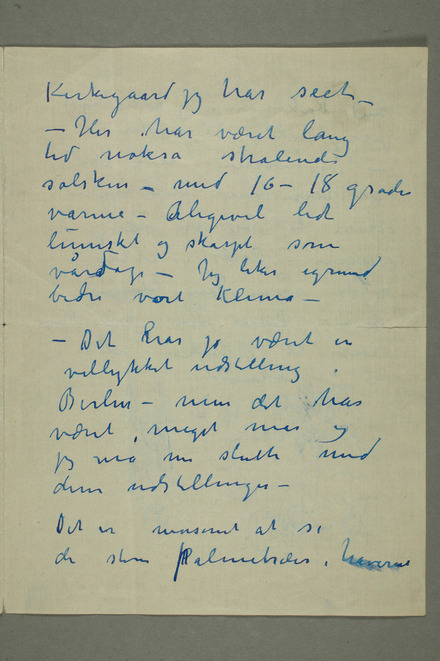 Kirkegaard jeg har seet –
– Her har været lang
tid noksa strålende
solskin – med 16 – 18 grader
varme – Aligevel lidt
lumsket og skarpt som
vårdage – Jeg liker igrund
bedre vort Klima –
– Det har jo været en
vellykket udstilling i
Berlin – men det har
været meget mas og
jeg må nu slutte med
disse udstillinger –
Det er morsomt at se
de store Palmetræer i haverne